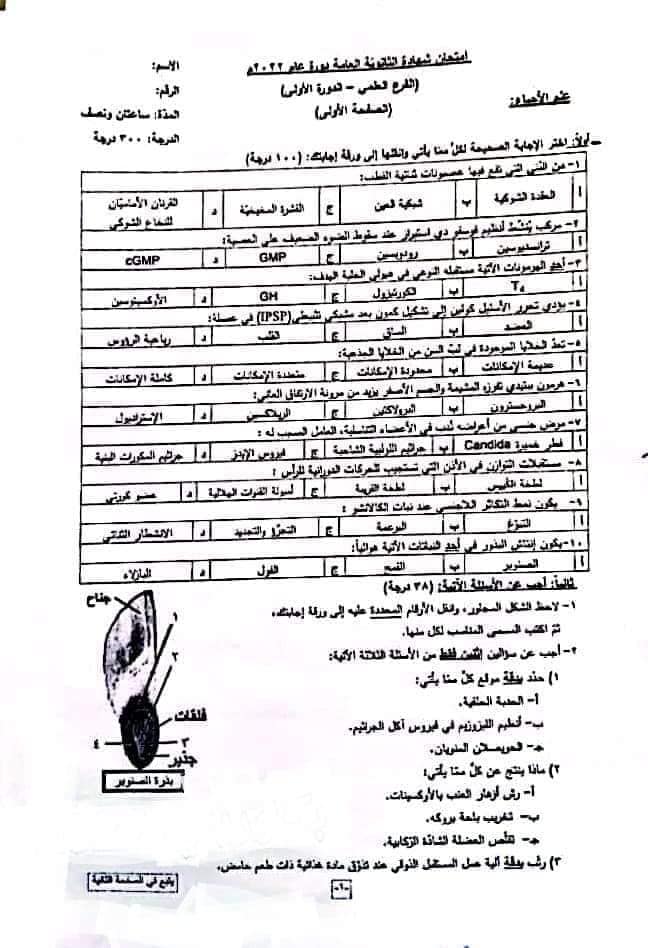 امتحان شهادة الثانوية العامة دورة عام ٢٠٢٢م
(الفرع العلمي – الدورة الأولى)
(الصفحة الأولى)
علم الأحياء:
الاسم:
الرقم:
المدة: ساعتان ونصف
الدرجة: ٣٠٠ درجة
أولاً: اختر الإجابة الصحيحة لكل مما يأتي وانقلها إلى ورقة إجابتك: (١٠٠ درجة)
١- من البنى التي تقع فيها عصبونات ثنائية القطب:
أ العقدة الشوكية ب شبكية العين ج القشرة المخيخية د القرنان الأماميان للنخاع الشوكي
٢- مركب ينشط أنظيم فوسفو دي استيراز عند سقوط الضوء الضعيف على العصية:
أ ترانسديوسين ب رودوبسين ج GMP د cGMP
٣- أحد الهرمونات الآتية مستقبله النوعي في هيولى الخلية الهدف:
أ T4 ب الكورتيزول ج GH د الأوكسيتوسين
٤- يؤدي تحرر الأستيل كولين إلى تشكيل كمون بعد مشبكي تثبيطي (IPSP) في عضلة:
أ العضد ب الساق ج القلب د رباعية الرؤوس
٥- تعد الخلايا الموجودة في لب السن من الخلايا الجذعية:
أ عديمة الإمكانات ب محدودة الإمكانات ج متعددة الإمكانات د كاملة الإمكانات
٦- هرمون ببتيدي تفرزه المشيمة والجسم الأصفر يزيد من مرونة الارتفاق العاني:
أ البروجسترون ب البرولاكتين ج الريلاكسين د الإستراديول
٧- مرض جنسي من أعراضه ندب في الأعضاء التناسلية، العامل المسبب له:
أ فطر خميرة Candida ب جراثيم اللولبية الشاحبة ج فيروس الإيدز د جراثيم المكورات البنية
٨- مستقبلات التوازن في الأذن التي تستجيب للحركات الدورانية للرأس:
أ لطخة الكييس ب لطخة القريبة ج أمبولة القنوات الهلالية د عضو كورتي
٩- يكون نمط التكاثر اللاجنسي عند نبات الكالانشو:
أ التبوغ ب البرعمة ج التجزؤ والتجديد د الانشطار الثنائي
١٠- يكون إنتاش البذور في أحد النباتات الآتية هوائياً:
أ الصنوبر ب القمح ج الفول د البازلاء
ثانياً: أجب عن الأسئلة الآتية: (٣٨ درجة)
١- لاحظ الشكل المجاور، وانقل الأرقام المحددة عليه إلى ورقة إجابتك،
ثم اكتب المسمى المناسب لكل منها.
٢- أجب عن سؤالين اثنين فقط من الأسئلة الثلاثة الآتية:
١) حدد بدقة موقع كل مما يأتي:
أ- الحدبة الحلقية.
ب- أنظيم الليزوزيم في فيروس آكل الجراثيم.
ج- الحويصلان المنويان.
٢) ماذا ينتج عن كل مما يأتي:
أ- رش أزهار العنب بالأوكسينات.
ب- تخريب باحة بروكه.
ج- تقلص العضلة الشادة الركابية.
٣) رتب بدقة آلية عمل المستقبل الذوقي عند تذوق مادة غذائية ذات طعم حامض.
جناح
١
٢
فلقات
٣
٤
جذير
بذرة الصنوبر
يتبع في الصفحة الثانية
-١-